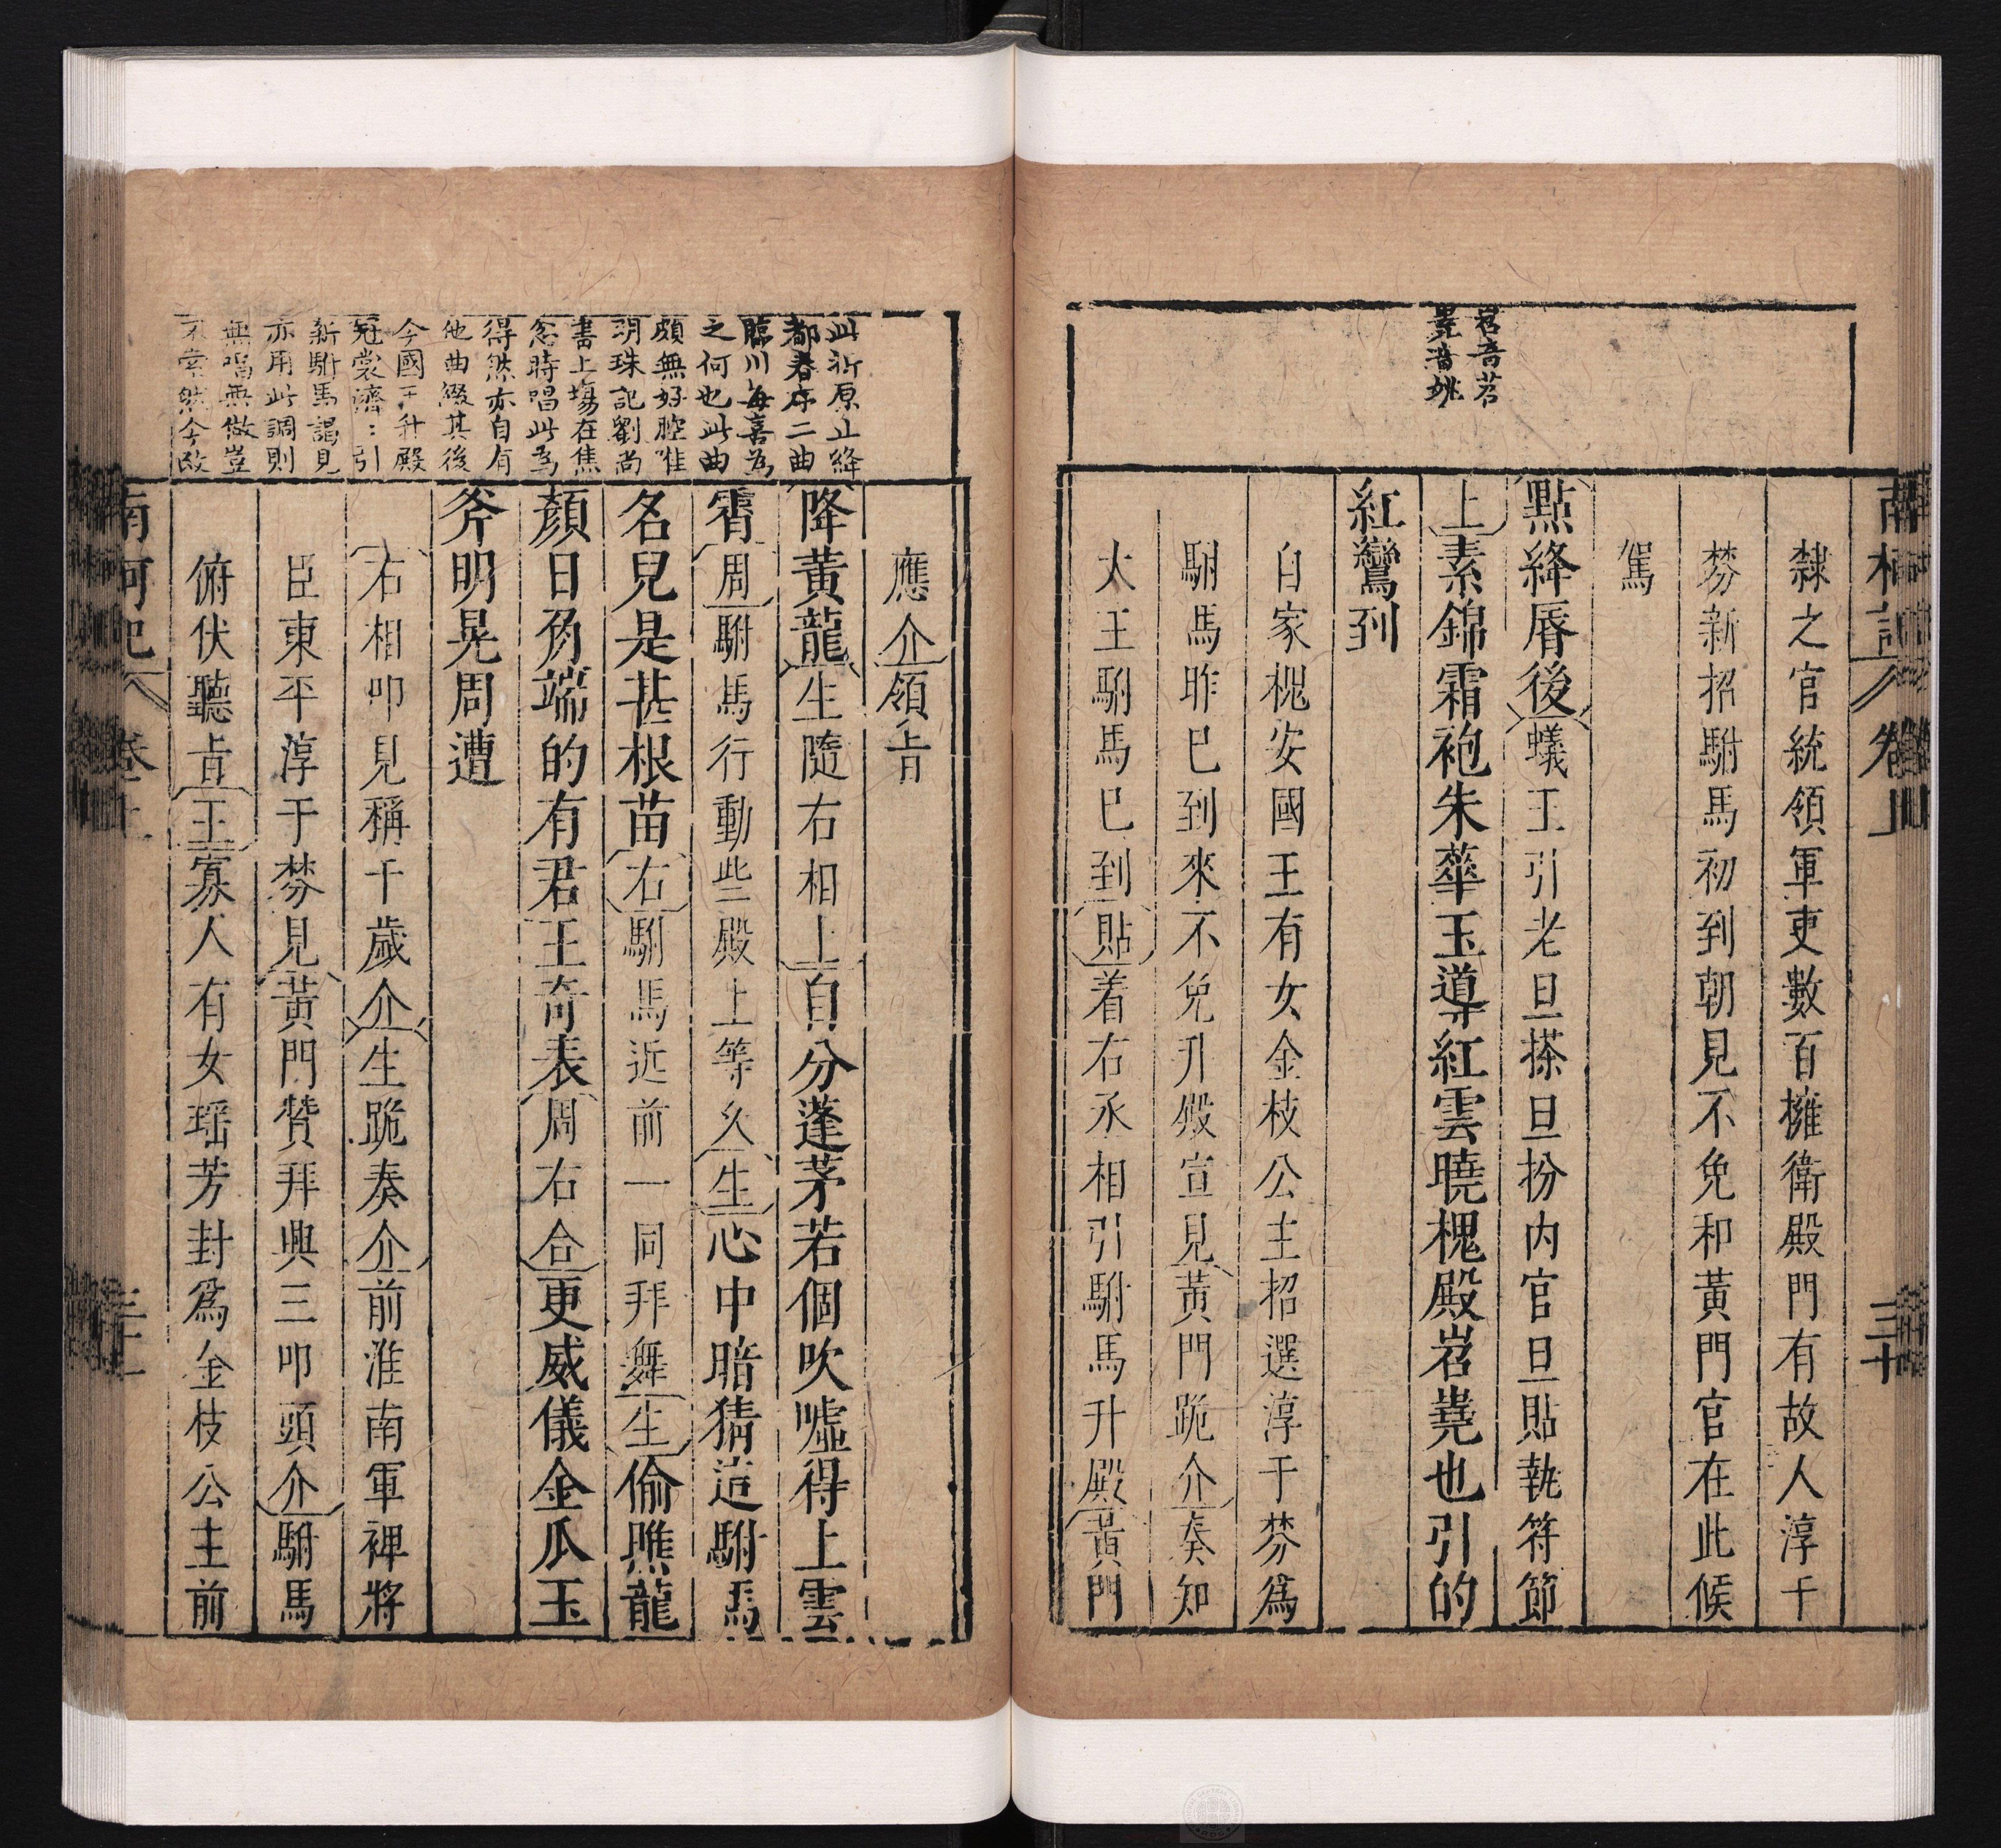 南柯記 卷上 三十
岧音苕
嶤音姚
隸之官統領軍吏數百擁衛殿門有故人淳于
棼新招駙馬初到朝見不免和黃門官在此候
駕
點絳脣後蟻王引老旦搽旦扮内官旦貼執符節
上素錦霜袍朱華玉導紅雲曉槐殿岧嶤也引的
紅鸞到
自家槐安國王有女金枝公主招選淳于棼為
駙馬昨已到來不免升殿宣見黃門跪介奏知
大王駙馬已到貼着右丞相引駙馬升殿黃門
此折原止絳
都春序二曲
臨川每喜為
之何也此曲
頗無好腔唯
明珠記劉尚
書上場在焦
忽時唱此為
得然亦自有
他曲綴其後
今國王升殿
冠裳濟：引
新駙馬謁見
亦用此調則
無唱無做豈
不索然今改
應介領旨
降黃龍生隨右相上自分蓬茅若個吹噓得上雲
霄周駙馬行動些殿上等久生心中暗猜這駙馬
名兒是甚根苗右駙馬近前一同拜舞生偷瞧龍
顏日角端的有君王奇表周右合更威儀金瓜玉
斧明晃周遭
右相叩見稱千歲介生跪奏介前淮南軍裨將
臣東平淳于棼見黃門贊拜興三叩頭介駙馬
俯伏聽旨王寡人有女瑶芳封爲金枝公主前
南柯記 卷上